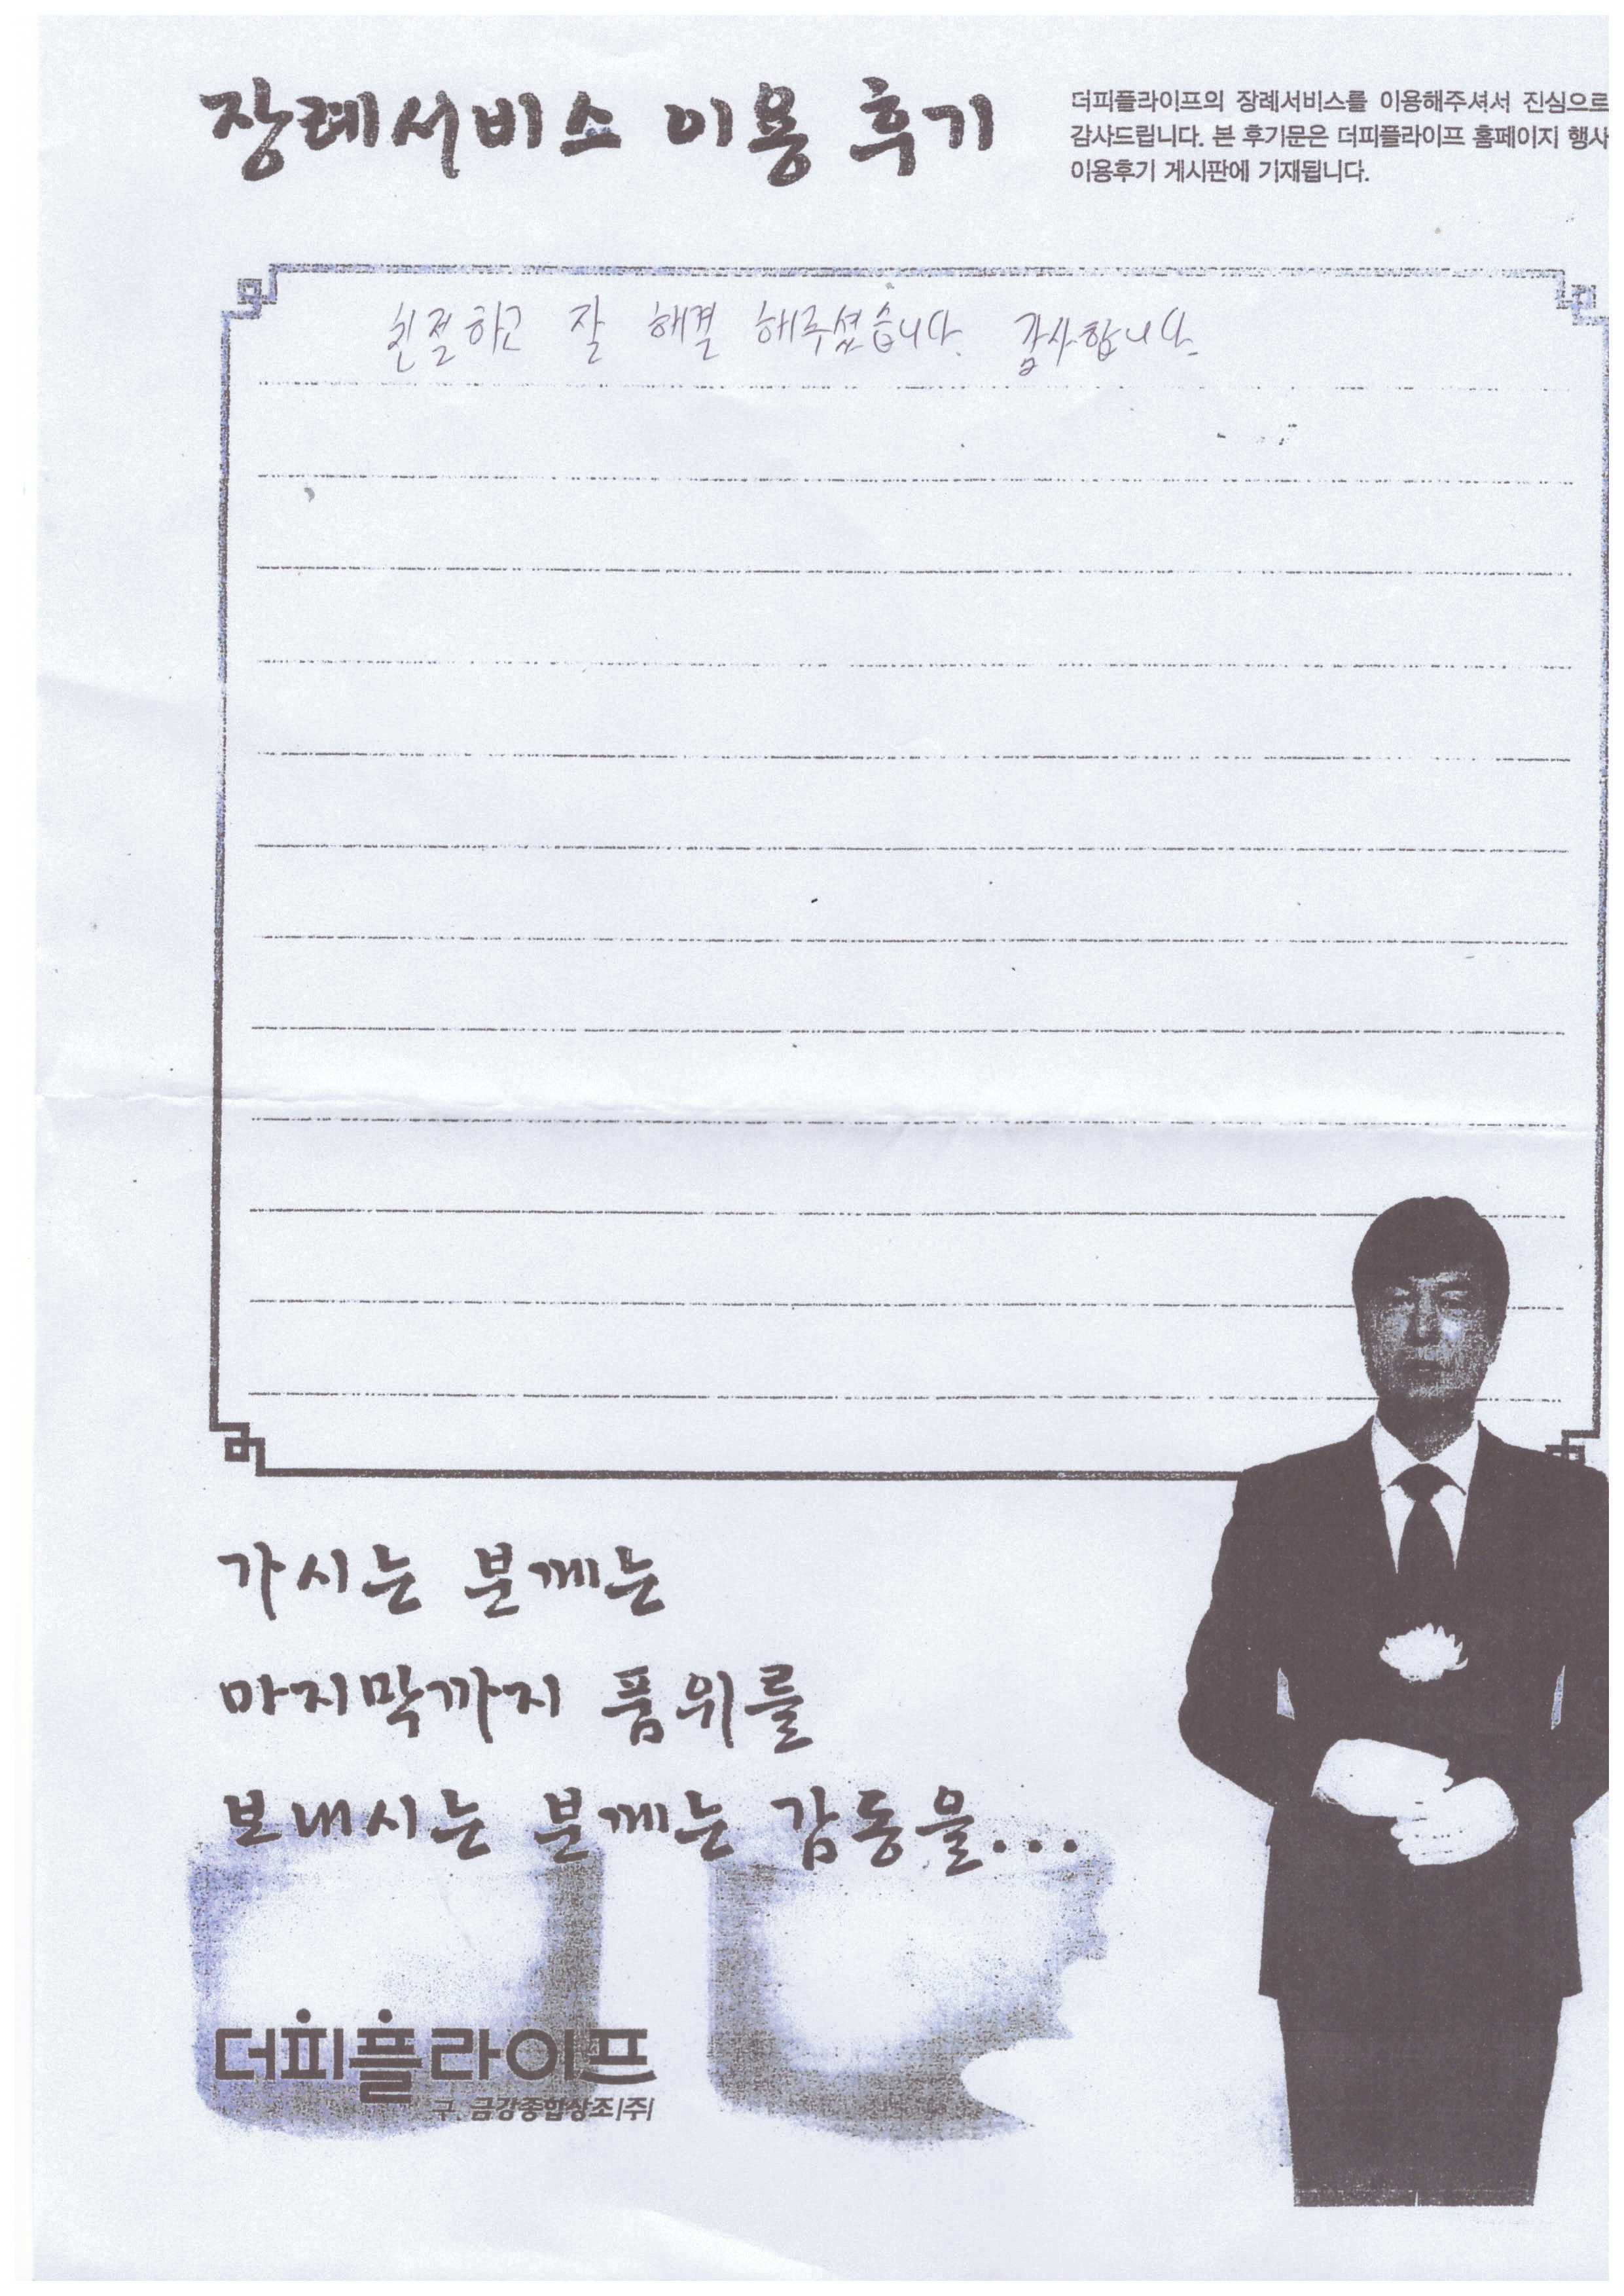 장례서비스 이용 후기
더피플라이프의 장례서비스를 이용해주셔서 진심으로
감사드립니다. 본 후기문은 더피플라이프 홈페이지 행사
이용후기 게시판에 기재됩니다.
친절하고 잘 해결 해주셨습니다. 감사합니다.
가시는 분께는
마지막까지 품위를
보내시는 분께는 감동을...
더피플라이프
구. 금강종합상조(주)